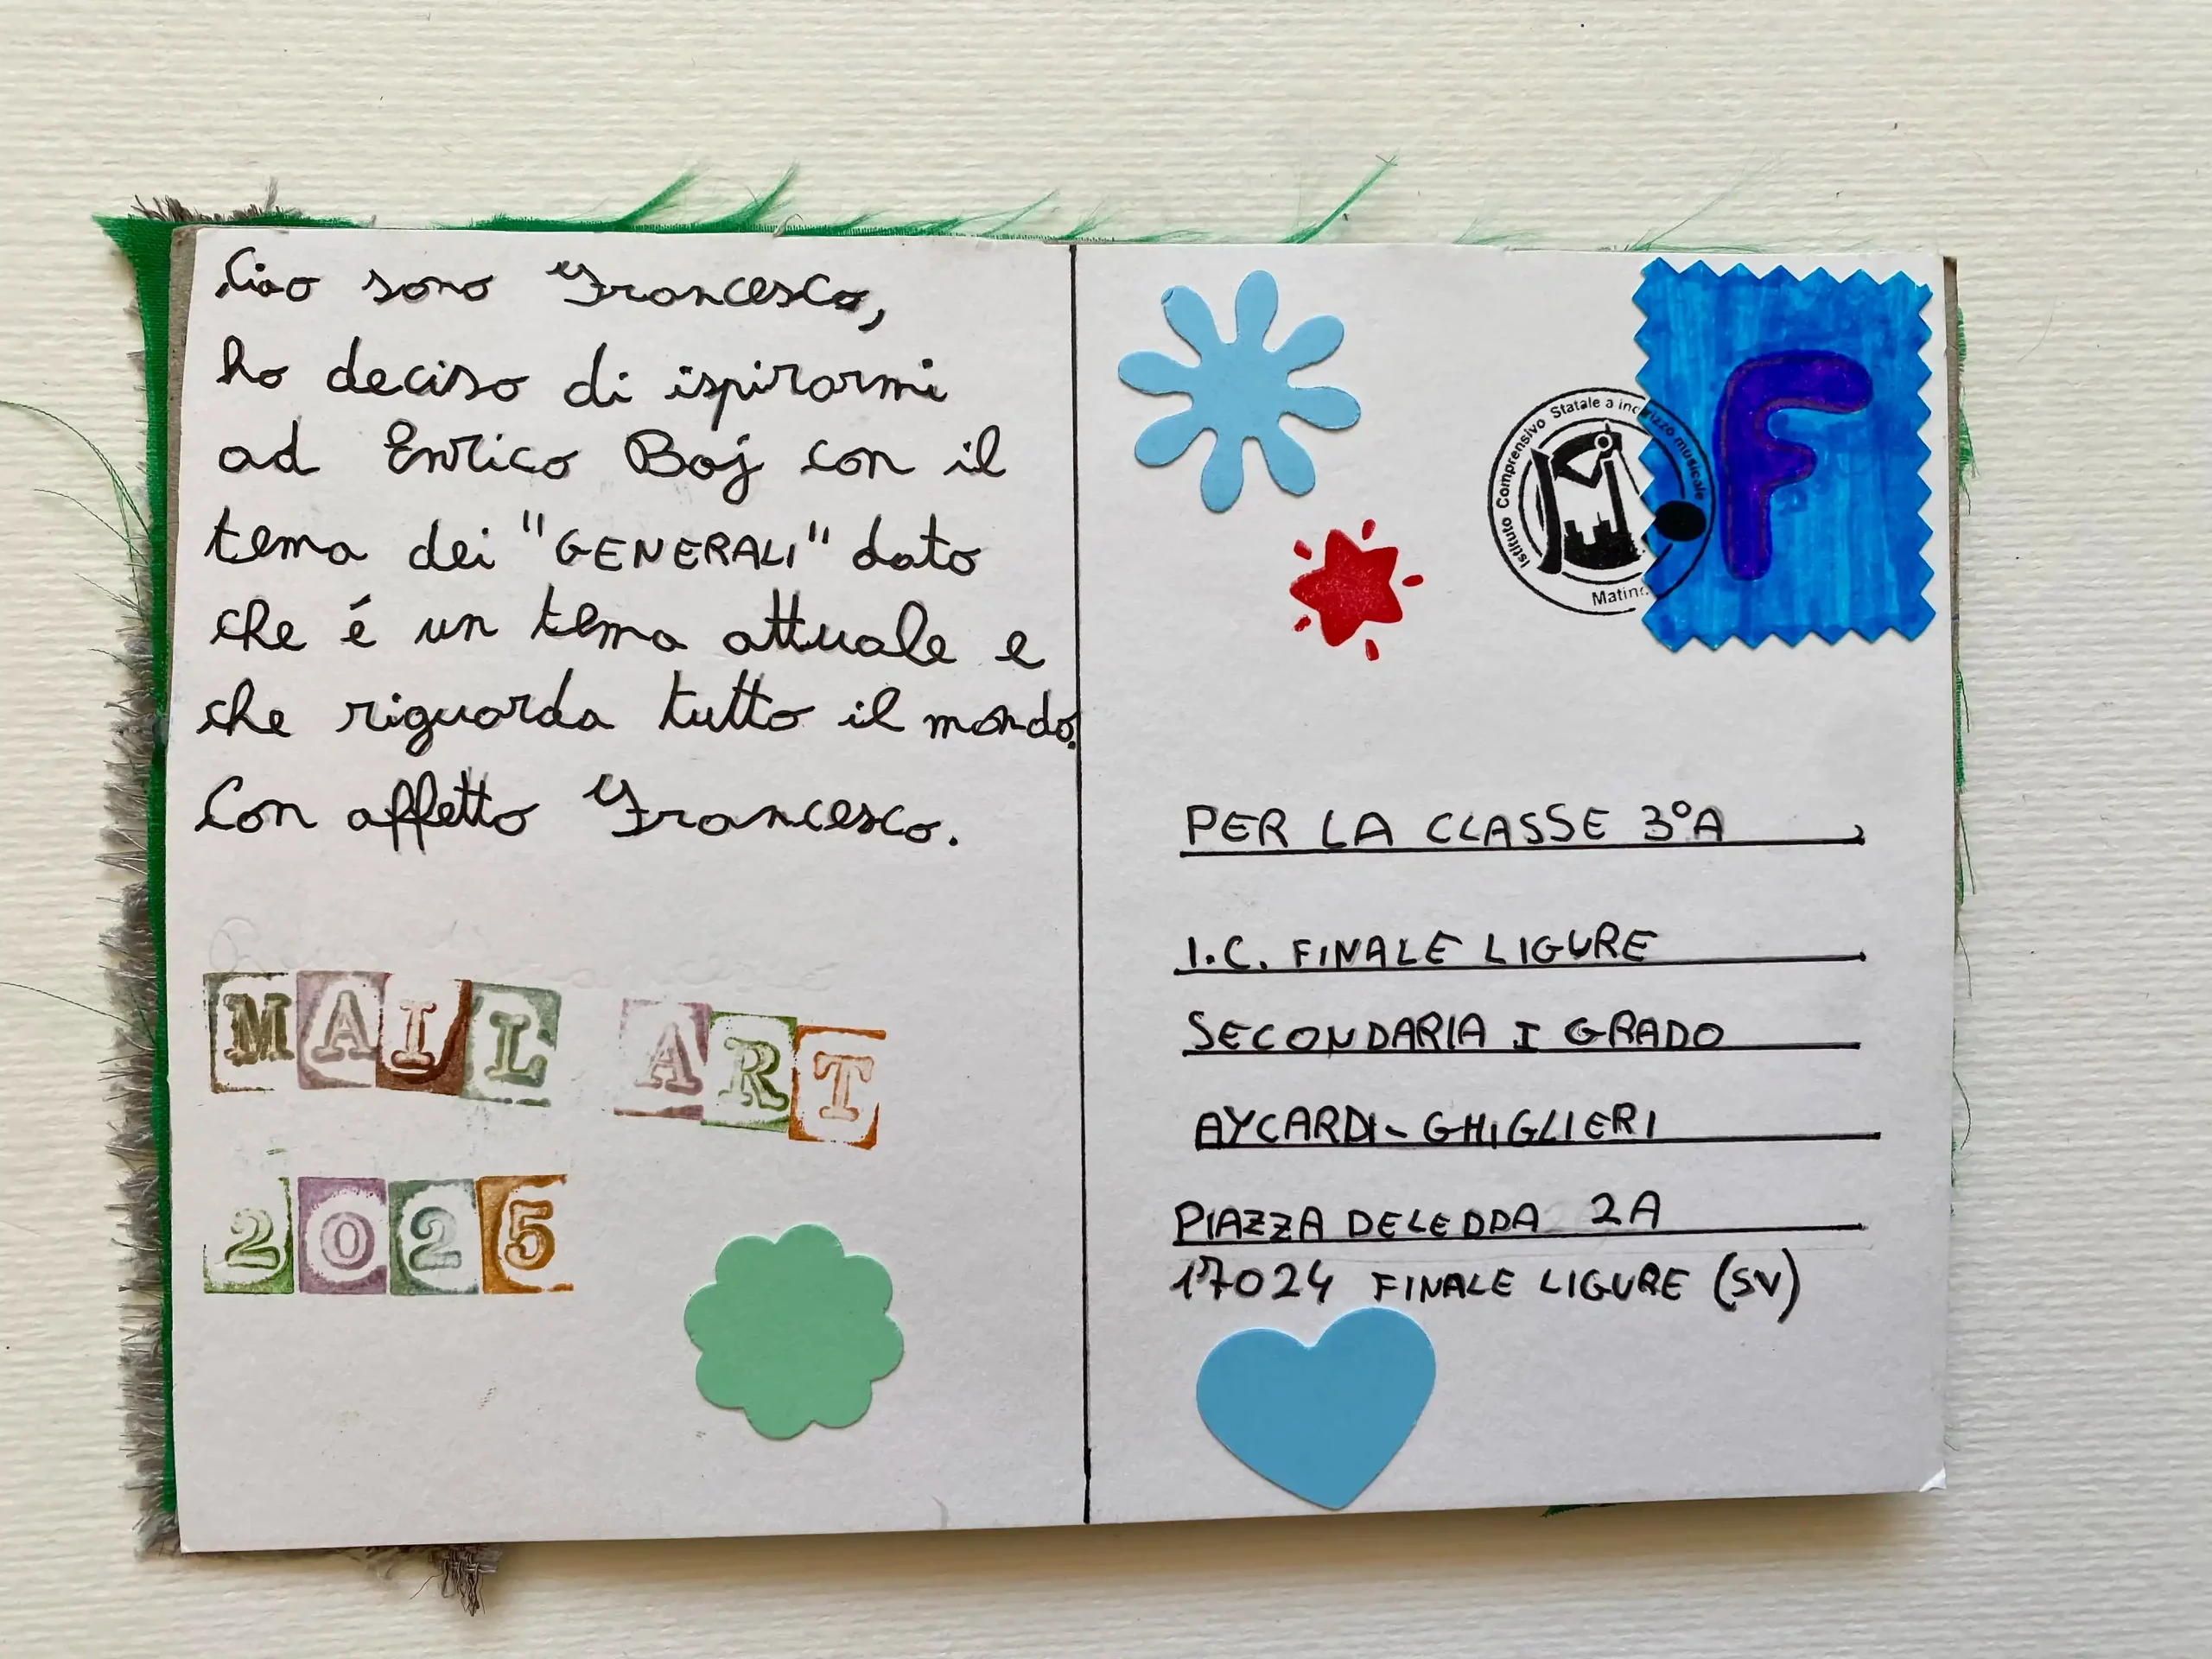 Ciao sono Francesco,
ho deciso di ispirarmi
ad Enrico Boj con il
tema dei "GENERALI" dato
che é un tema attuale e
che riguarda tutto il mondo.
Con affetto Francesco.
MAIL ART
2025
F
Istituto Comprensivo Statale a indirizzo musicale
PER LA CLASSE 3°A
I.C. FINALE LIGURE
SECONDARIA I GRADO
AYCARDI-GHIGLIERI
PIAZZA DELEDDA 2A
17024 FINALE LIGURE (SV)